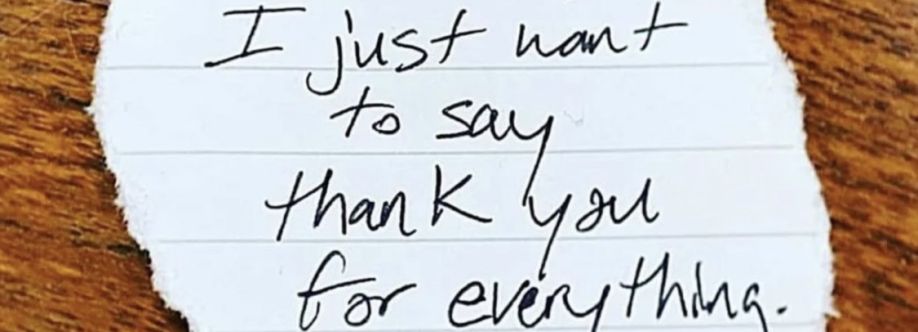 I just want
to say
thank you
for everything.